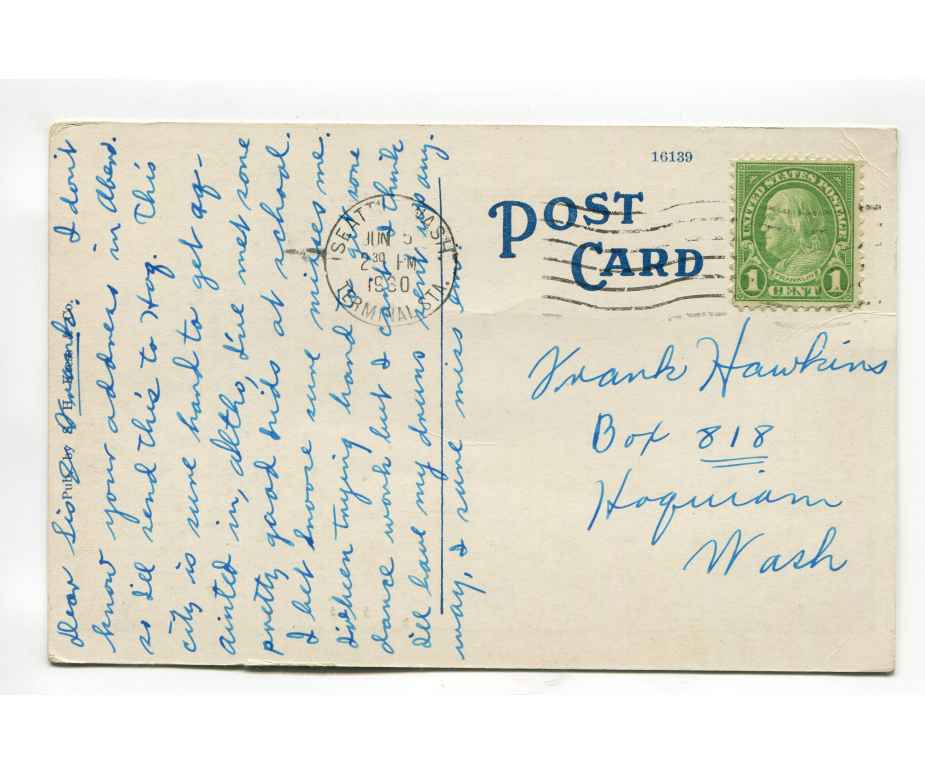 Dear Sis & I don't
know your address in Aberd.
so I'll send this to Hoq. This
city is sure hard to get aq-
ainted in, altho, I've met some
pretty good kids at school.
I bet sure misses me.
trying hard get some
dance work but I can't. I think
I'll have my drums sent any
way, I sure miss
Co.
16139
POST
CARD
SEATTLE WASH.
JUN 5
2 30 PM
1930
TERMINAL STA.
UNITED STATES POSTAGE
FRANKLIN
1 CENT 1
Frank Hawkins
Box 818
Hoquiam
Wash